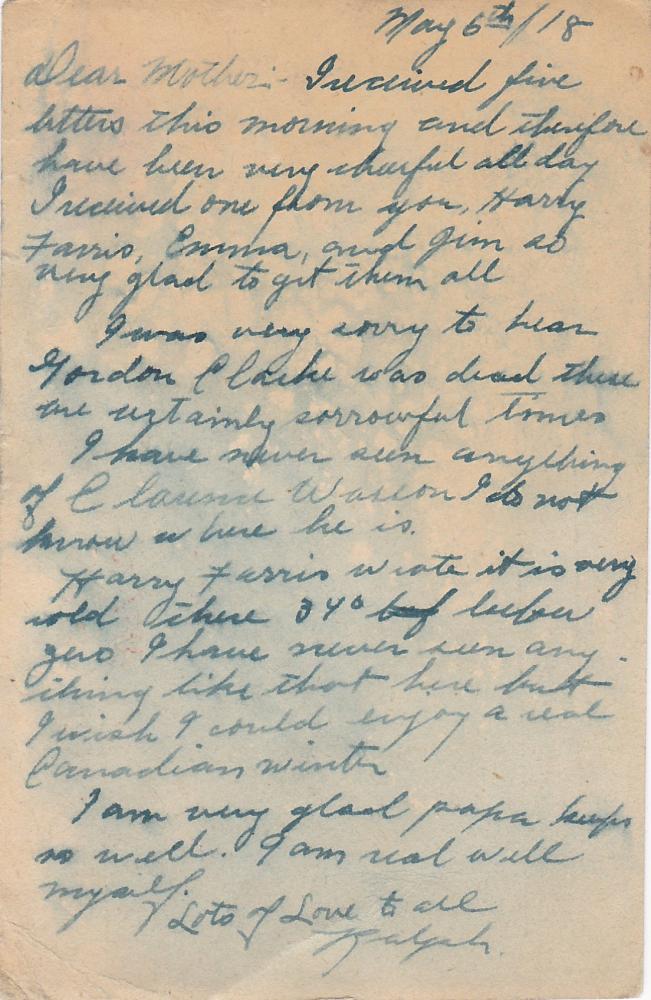 May 6th/18
Dear Mother:- I received five
letters this morning and therefore
have been very cheerful all day
I received one from you, Harry
Farris, Emma, and Jim so
very glad to get them all
I was very sorry to hear
Gordon Clarke was dead these
are certainly sorrowful times
I have never seen anything
of Clarence Wasson I do not
know where he is.
Harry Farris wrote it is very
cold there 34° below
zero I have never seen any-
thing like that here but
I wish I could enjoy a real
Canadian winter
I am very glad papa keeps
so well. I am real well
myself.
Lots of Love to all
Ralph.